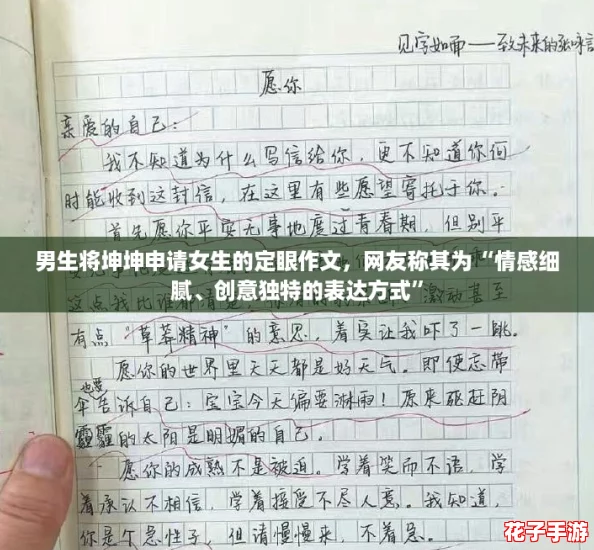 见字如面——致未来的张咏言
愿你
亲爱的自己：
我不知道为什么写信给你，更不知道你何
时能收到这封信，在这里有些愿望寄托于你。
首先愿你平安无事地度过青春期，但别平
男生将坤坤申请女生的定眼作文，网友称其为“情感细
腻、创意独特的表达方式”
有点“草莽精神”的意思，着实让我吓了一跳。
愿你的世界里天天都是好天气。即使忘带
也要
伞告诉自己：宝宝今天偏要淋雨！原来驱赶阴
霾霾的太阳是明媚的自己。
愿你的成熟不是被迫。学着笑而不语，学
着承认不相信，学着接受不尽人意。我知道，
你是个急性子，但请慢慢来，不着急。
花子手游